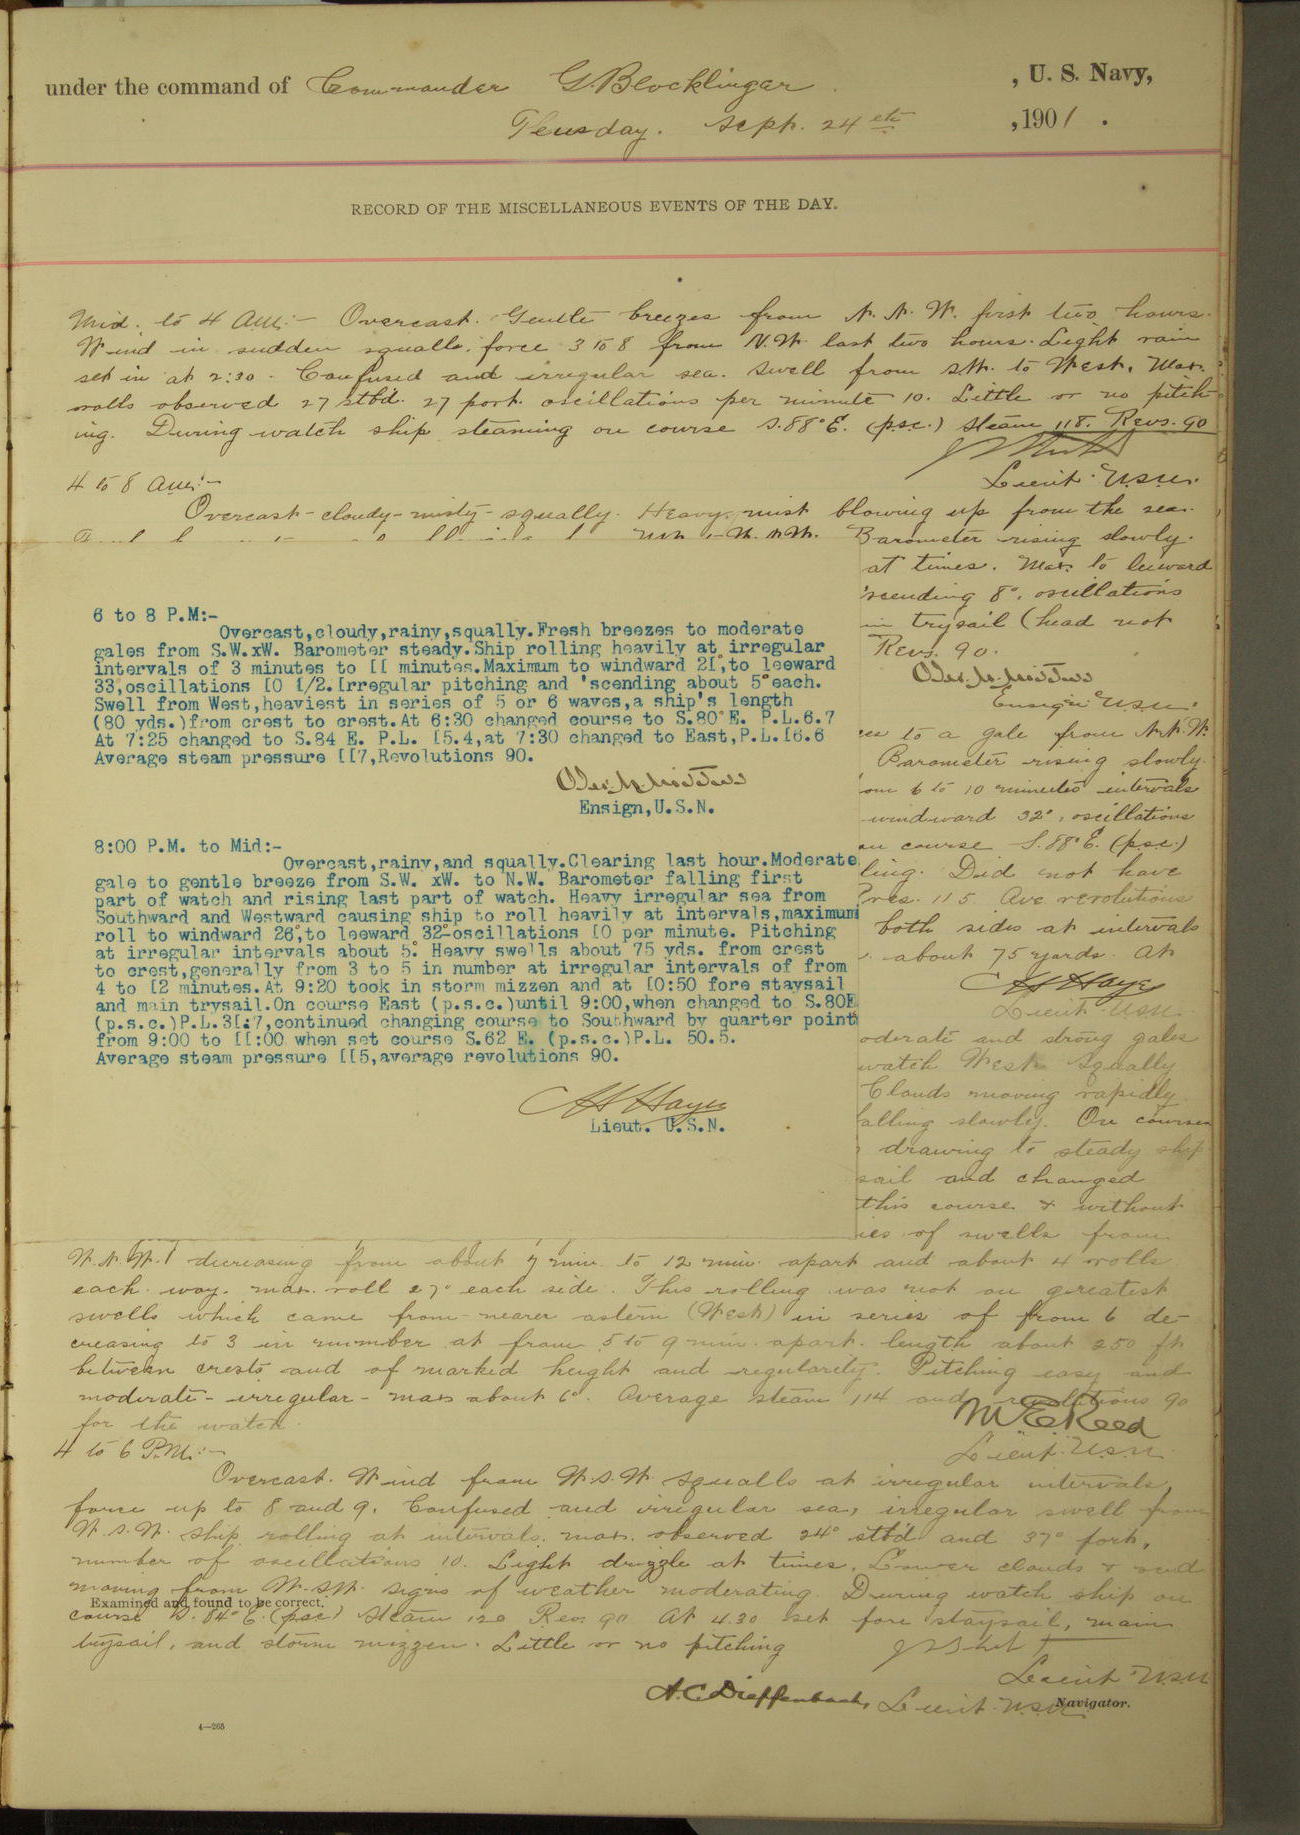 under the command of Commander G. Blocklinger , U. S. Navy,
Teusday. Sept. 24th , 1901 .
RECORD OF THE MISCELLANEOUS EVENTS OF THE DAY.
Mid. to 4 Am:- Overcast. Gentle breezes from N. N. W. first two hours.
Wind in sudden squalls. force 3 to 8 from N.W. last two hours. Light rain
set in at 2:30. Confused and irregular sea. Swell from SW. to West. Max.
rolls observed 27 stbd. 27 port. oscillations per minute 10. Little or no pitch-
ing. During watch ship steaming on course S.88°E. (p.s.c.) Steam 118. Revs. 90
Lieut. U.S.N.
4 to 8 Am:-
Overcast-cloudy-misty-squally. Heavy mist blowing up from the sea.
Barometer rising slowly.
at times. Max. to leeward
'scending 8°, oscillations
trysail (head not
Revs. 90.
Ensign U.S.N.
to a gale from N.N.W.
Barometer rising slowly.
6 to 10 minutes intervals
windward 32°, oscillations
on course S.88°E. (p.s.c.)
ling. Did not have
Pres. 115 Ave revolutions
both sides at intervals
about 75 yards. At
C H Hayes
Lieut. U.S.N.
oderate and strong gales
watch West. Squally
Clouds moving rapidly
alling slowly. On courses
drawing to steady ship
sail and changed
this course & without
ies of swells from
6 to 8 P.M:-
Overcast,cloudy,rainy,squally.Fresh breezes to moderate
gales from S.W.xW. Barometer steady.Ship rolling heavily at irregular
intervals of 3 minutes to [[ minutes.Maximum to windward 2[°,to leeward
33,oscillations [0 [/2.[rregular pitching and 'scending about 5°each.
Swell from West,heaviest in series of 5 or 6 waves,a ship's length
(80 yds.)from crest to crest.At 6:30 changed course to S.80°E. P.L.6.7
At 7:25 changed to S.84 E. P.L. [5.4,at 7:30 changed to East,P.L.[6.6
Average steam pressure [[7,Revolutions 90.
Ensign,U.S.N.
8:00 P.M. to Mid:-
Overcast,rainy,and squally.Clearing last hour.Moderate
gale to gentle breeze from S.W. xW. to N.W. Barometer falling first
part of watch and rising last part of watch. Heavy irregular sea from
Southward and Westward causing ship to roll heavily at intervals,maximum
roll to windward 26°,to leeward 32°-oscillations [0 per minute. Pitching
at irregular intervals about 5°. Heavy swells about 75 yds. from crest
to crest,generally from 3 to 5 in number at irregular intervals of from
4 to [2 minutes.At 9:20 took in storm mizzen and at [0:50 fore staysail
and main trysail.On course East (p.s.c.)until 9:00,when changed to S.80E
(p.s.c.)P.L.3[:7,continued changing course to Southward by quarter point
from 9:00 to [[:00 when set course S.62 E. (p.s.c.)P.L. 50.5.
Average steam pressure [[5,average revolutions 90.
C H Hayes
Lieut. U.S.N.
W.N.W. decreasing from about 7 min. to 12 min. apart and about 4 rolls
each way. max. roll 27° each side. This rolling was not on greatest
swells which came from nearer astern (West) in series of from 6 de-
creasing to 3 in number at from 5 to 9 min. apart. length about 250 ft
between crests and of marked height and regularety. Pitching easy and
moderate-irregular-max about 6°. Average steam 114 and revolutions 90
for the watch.
M E Reed
Lieut. U.S.N.
4 to 6 P.M.:-
Overcast. Wind from W.S.W. Squalls at irregular intervals,
force up to 8 and 9. Confused and irregular sea, irregular swell from
W.S.W. Ship rolling at intervals, max. observed 24° stb'd and 37° port,
number of oscillations 10. Light drizzle at times. Lower clouds & scud
moving from W.SW. Signs of weather moderating. During watch ship on
course S. 84° E. (psc) Steam 120 Rev. 90 At 4.30 set fore staysail, main
trysail, and storm mizzen. Little or no pitching
Lieut U.S.N
Examined and found to be correct.
A. C. Dieffenbach, Lieut. U.S.N. Navigator.
4—265